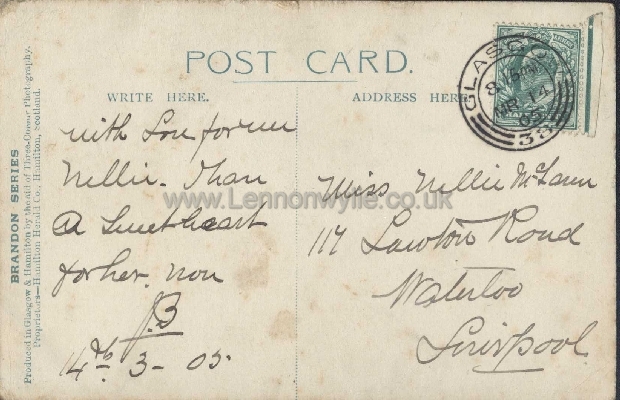 POST CARD.
WRITE HERE.
ADDRESS HERE
GLASGOW
8
MR 14
05
38
with Love for
Nellie. Than
A Sweetheart
for her. Non
J.B
14th 3- 05.
Miss Nellie McLaren
117 Lawton Road
Waterloo
Liverpool
BRANDON SERIES
Produced in Glasgow & Hamilton by the aid of Three-Colour Photography.
Proprietors—Hamilton Herald Co., Hamilton, Scotland.
www.Lennonwylie.co.uk